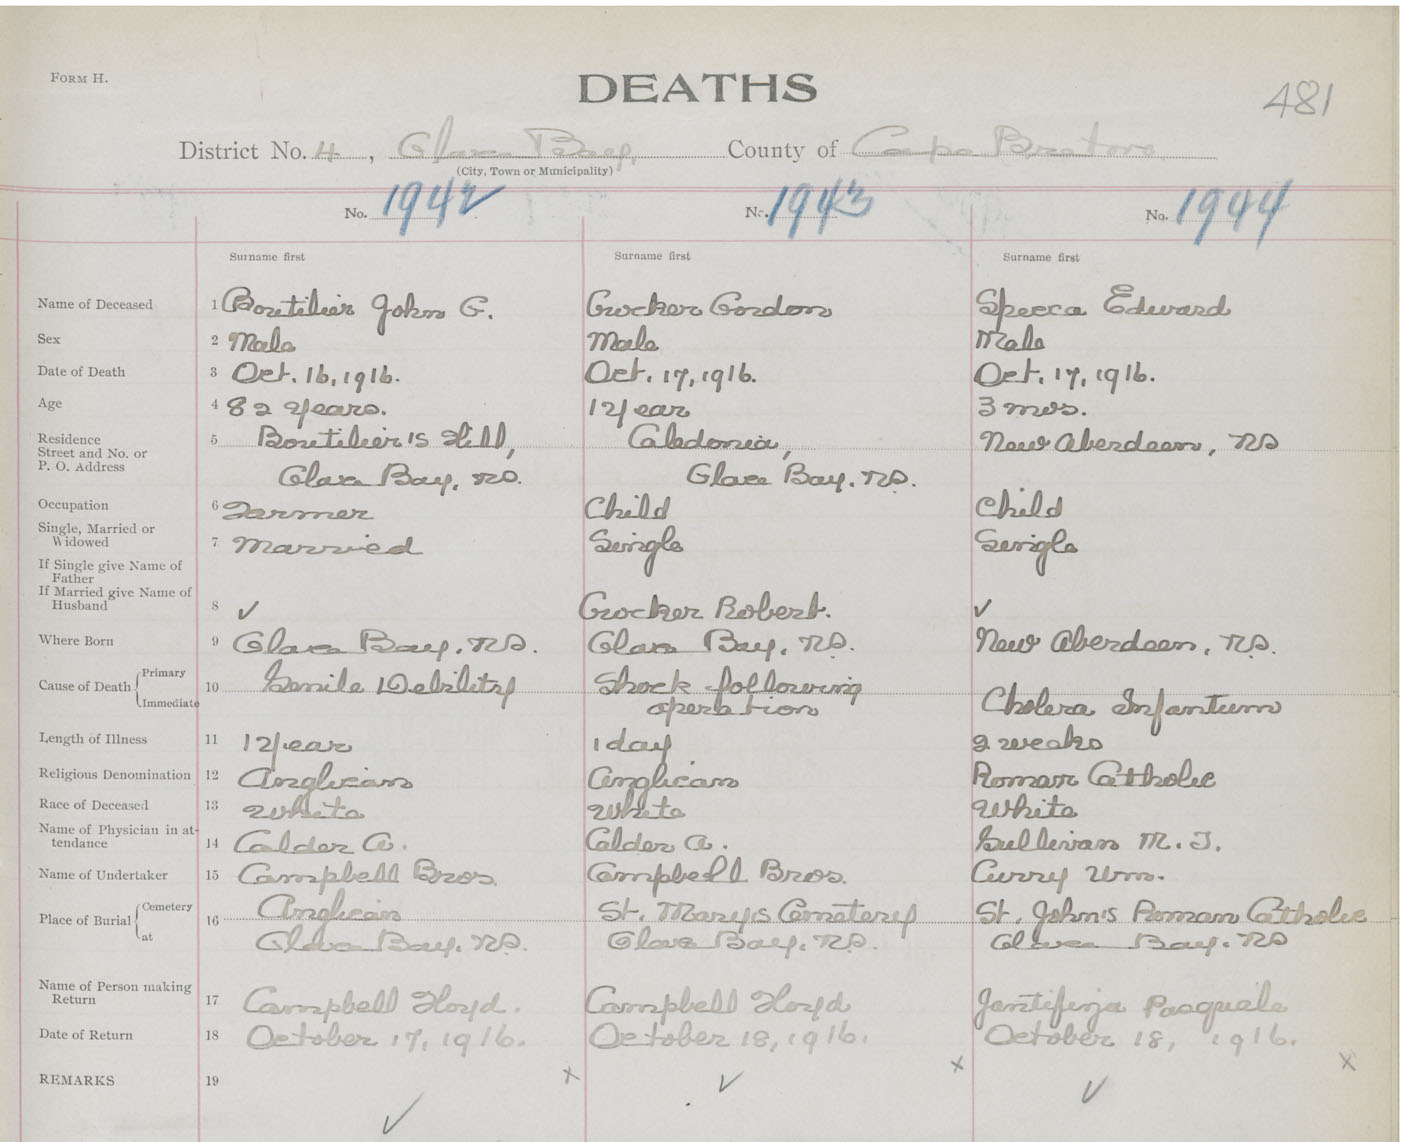 FORM H.
DEATHS
481
District No. 4, Glace Bay, County of Cape Breton
(City, Town or Municipality)
No. 1942 No. 1943 No. 1944
Surname first Surname first Surname first
Name of Deceased 1 Boutilier John G. Crocker Gordon Specca Edward
Sex 2 Male Male Male
Date of Death 3 Oct. 16, 1916. Oct. 17, 1916. Oct. 17, 1916.
Age 4 82 years. 1 year 3 mos.
Residence 5 Boutilier's Hill, Caledonia, New Aberdeen, NS
Street and No. or
P. O. Address Glace Bay, NS. Glace Bay, NS.
Occupation 6 Farmer Child Child
Single, Married or
Widowed 7 Married Single Single
If Single give Name of
Father
If Married give Name of
Husband 8 ✓ Crocker Robert. ✓
Where Born 9 Glace Bay, NS. Glace Bay, NS. New Aberdeen, NS.
Cause of Death Primary Senile Debility Shock following
10
Immediate operation Cholera Infantum
Length of Illness 11 1 year 1 day 2 weeks
Religious Denomination 12 Anglican Anglican Roman Catholic
Race of Deceased 13 White White White
Name of Physician in at-
tendance 14 Calder A. Calder A. Sullivan M. J.
Name of Undertaker 15 Campbell Bros. Campbell Bros. Curry Wm.
Place of Burial Cemetery 16 Anglican St. Mary's Cemetery St. John's Roman Catholic
at Glace Bay, NS. Glace Bay, NS. Glace Bay, NS
Name of Person making
Return 17 Campbell Floyd. Campbell Floyd Pasquale
Date of Return 18 October 17, 1916. October 18, 1916. October 18, 1916.
REMARKS 19 x x x
✓ ✓ ✓